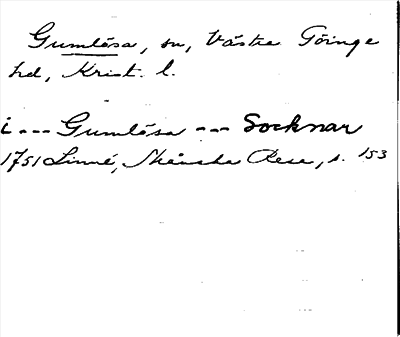 Gumlösa, sn, Västra Göinge
hd, Krist. l.
i --- Gumlösa --- Socknar
1751 Linné, Skånska Resa, s. 153